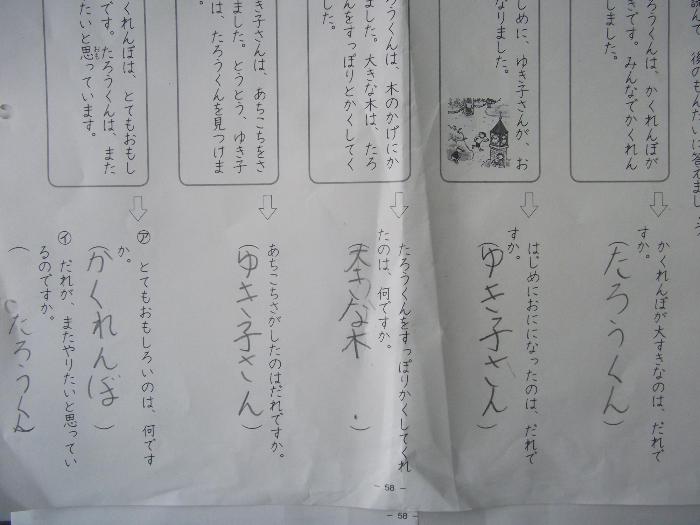 読んで、後のもんだいに答えましょう。
ろうくんは、かくれんぼが
きです。みんなでかくれん
しました。
かくれんぼが大すきなのは、だれで
すか。
(たろうくん)
じめに、ゆき子さんが、お
なりました。
はじめにおにになったのは、だれで
すか。
(ゆき子さん)
ろうくんは、木のかげにか
ました。大きな木は、たろ
んをすっぽりとかくしてく
した。
たろうくんをすっぽりかくしてくれ
たのは、何ですか。
(大きな木)
き子さんは、あちこちをさ
ました。とうとう、ゆき子
は、たろうくんを見つけま
あちこちさがしたのはだれですか。
(ゆき子さん)
くれんぼは、とてもおもし
です。たろうくんは、また
たいと思っています。
おも
㋐ とてもおもしろいのは、何です
か。
(かくれんぼ)
㋑ だれが、またやりたいと思ってい
るのですか。
(たろうくん
- 58 -
- 58 -